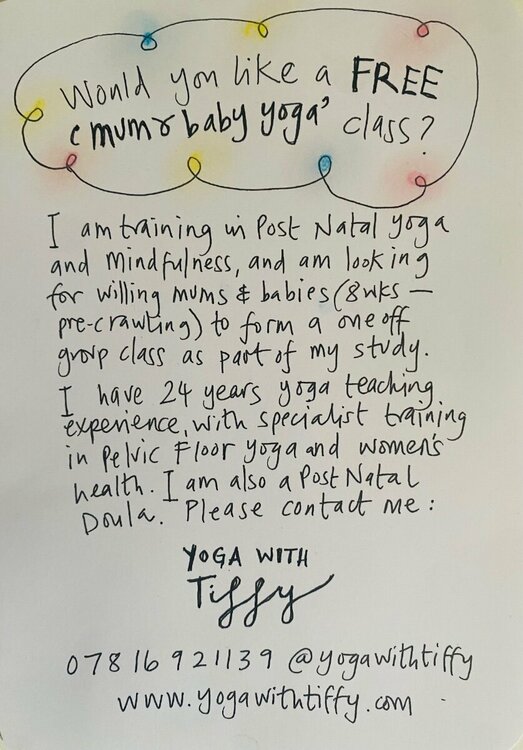 Would you like a FREE
'mum & baby yoga' class?
I am training in Post Natal yoga
and Mindfulness, and am looking
for willing mums & babies (8wks —
pre-crawling) to form a one off
group class as part of my study.
I have 24 years yoga teaching
experience, with specialist training
in Pelvic Floor yoga and women's
health. I am also a Post Natal
Doula. Please contact me :
YOGA WITH
Tiffy
07816921139 @yogawithtiffy
www.yogawithtiffy.com